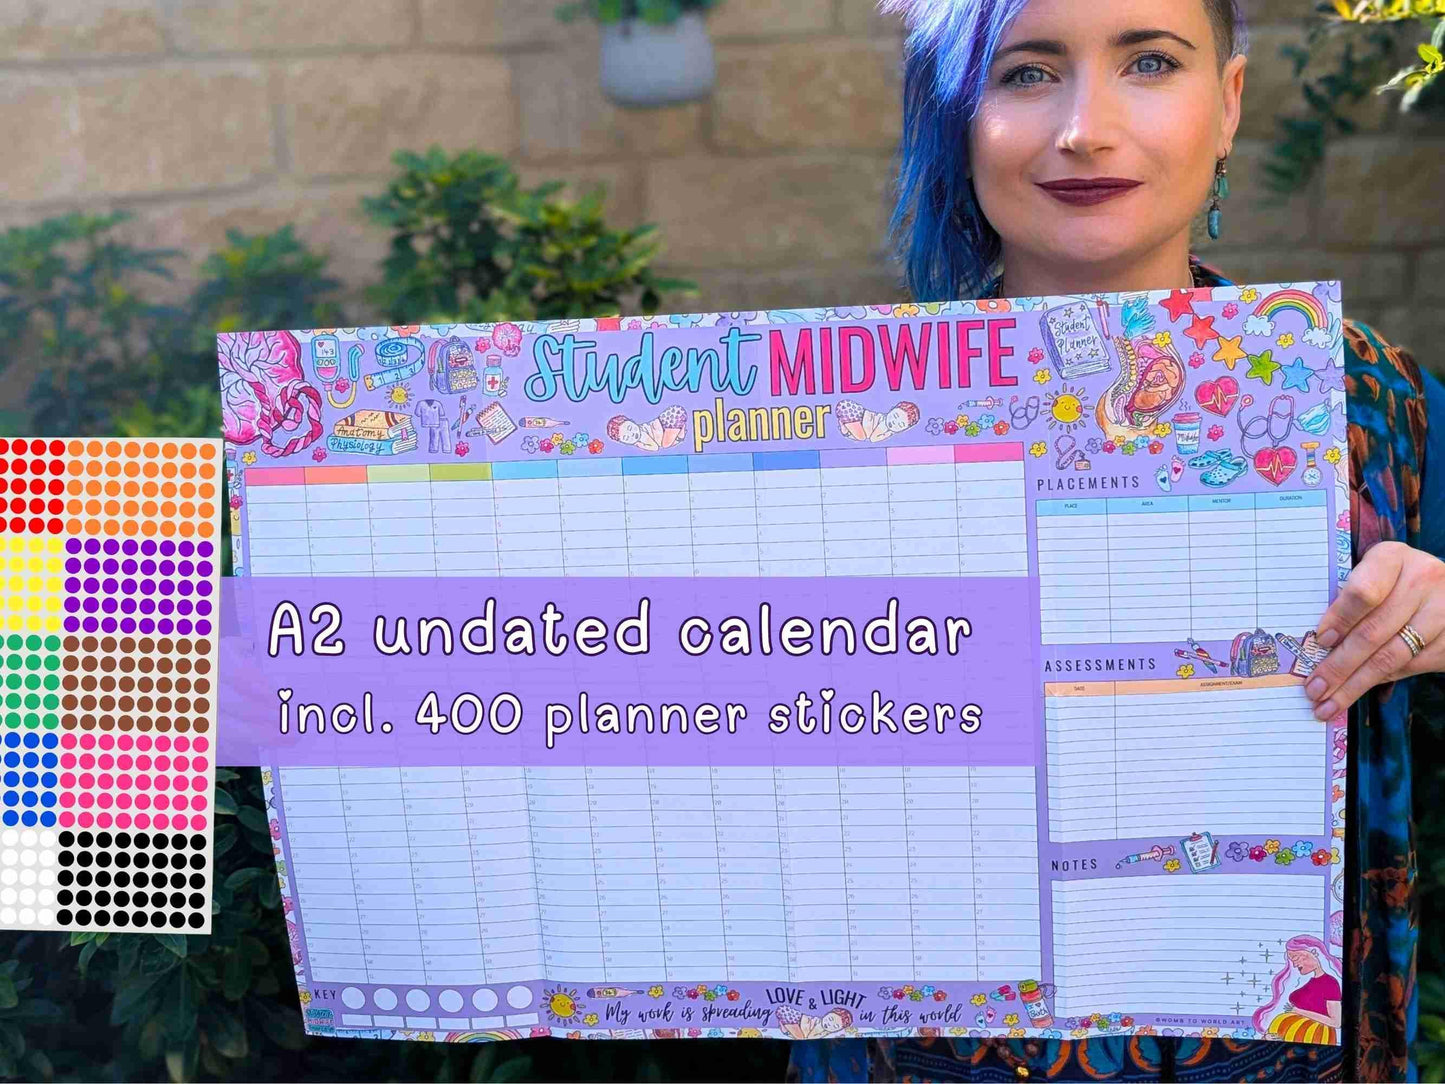 Student MIDWIFE
planner
Student
Planner
143
Anatomy
Physiology
Midwife
PLACEMENTS
PLACE AREA MENTOR DURATION
A2 undated calendar
incl. 400 planner stickers
ASSESSMENTS
DATE ASSIGNMENT/EXAM
NOTES
KEY
LOVE & LIGHT
My work is spreading in this world
©WOMB TO WORLD ART